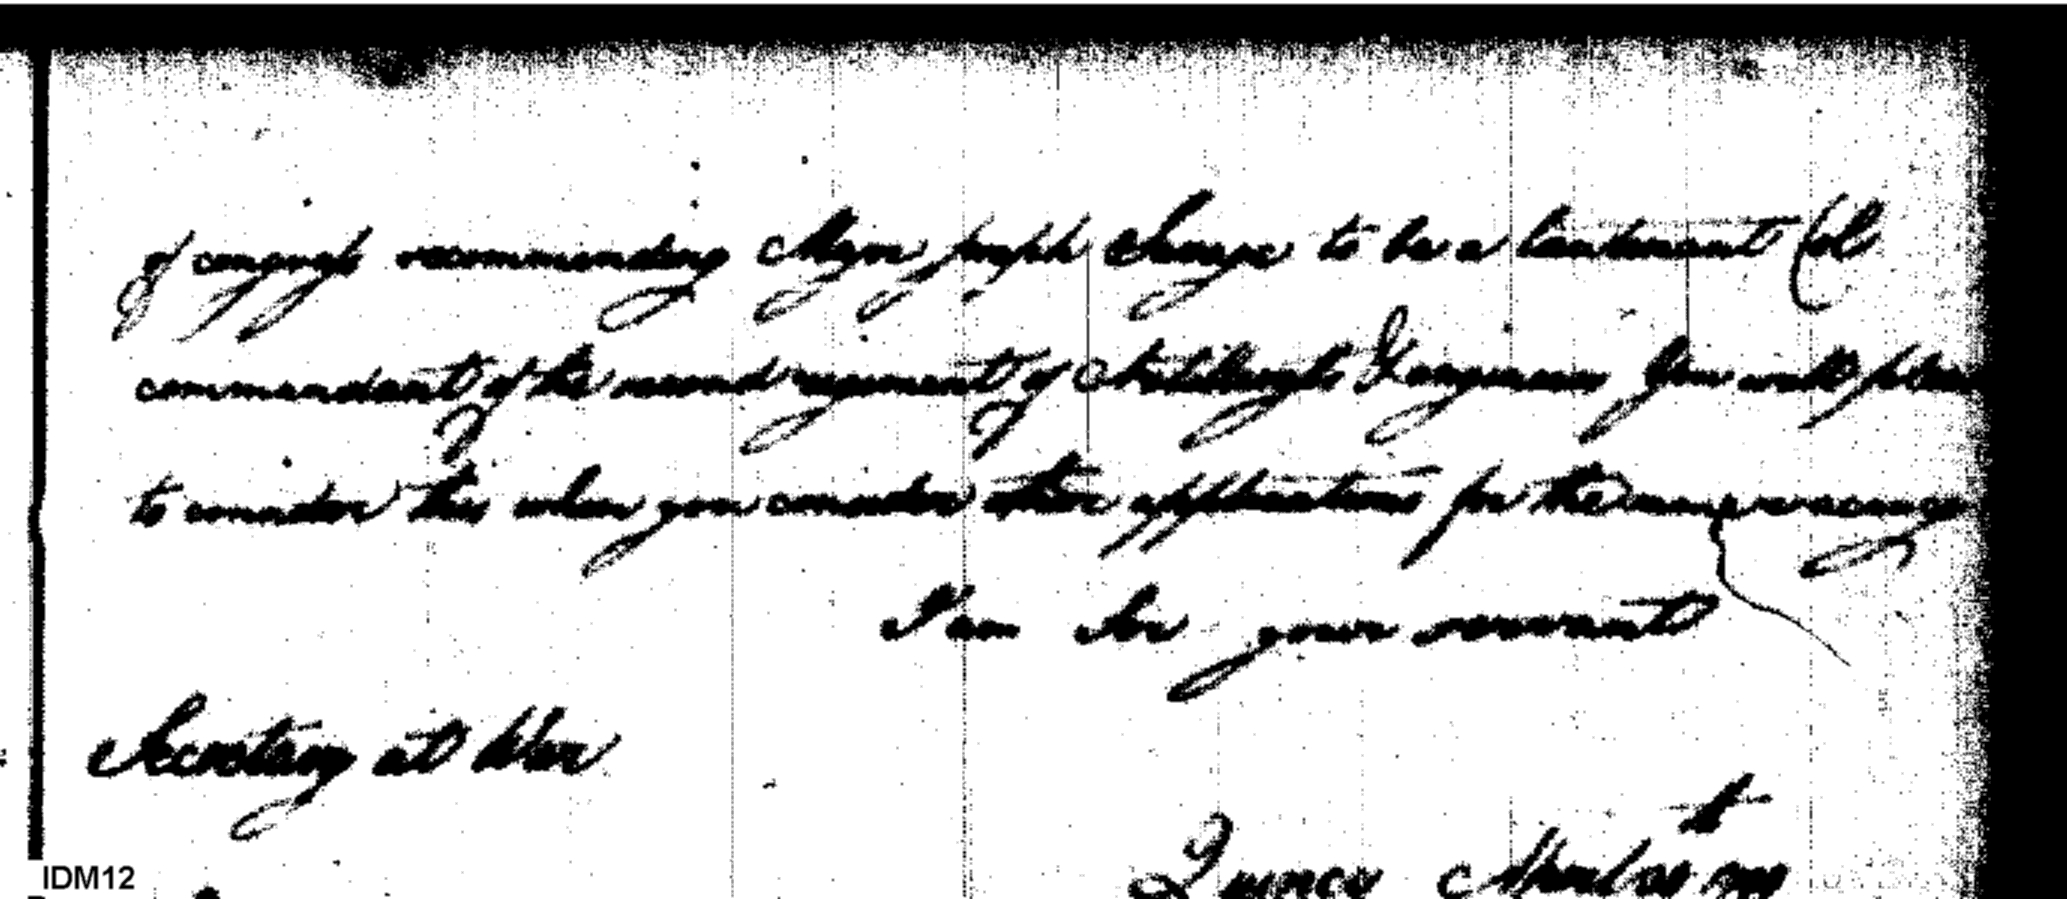 of congress recommending Major Joseph to be a lieutenant Col
commandant of the second regiment of & Engineers You will please
to consider this when you consider other applications for the same vacancy
I am Sir your servant
Secretary at War
IDM12
Quincy April